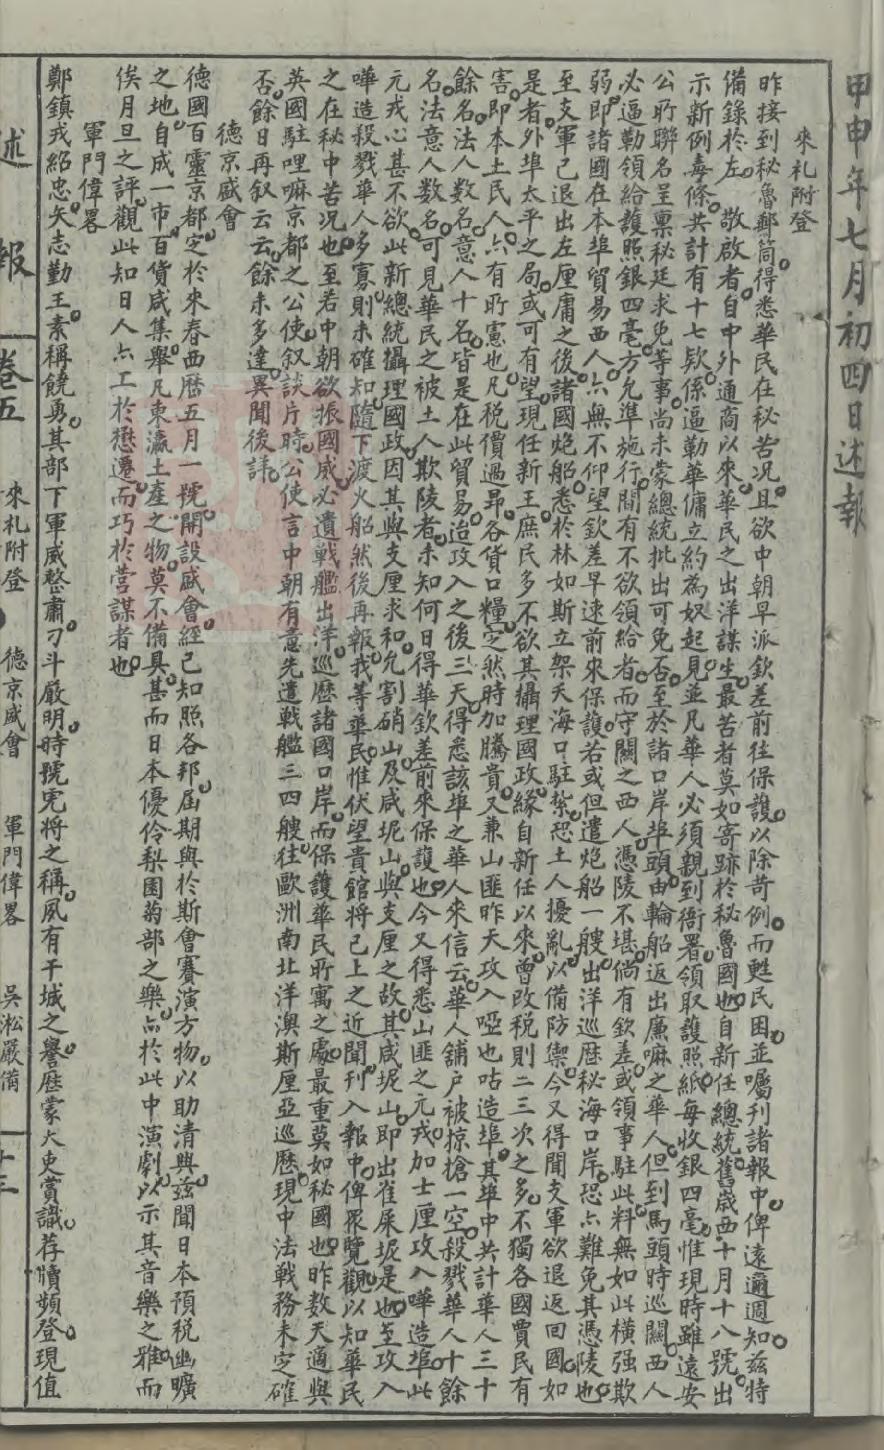 甲申年七月初四日述報
來札附登
昨接到秘魯郵筒得悉華民在秘苦况且欲中朝早派欽差前往保護以除苛例而甦民困並囑刊諸報中俾遠邇週知茲特
備錄於左　敬啟者自中外通商以來華民之出洋謀生最苦者莫如寄跡於秘魯國也自新任總統舊歲西十月十八號出
示新例毒條共計有十七欵係逼勒華傭立約為奴起見並凡華人必須親到衙署領取護照紙每收銀四毫惟現時雖遠安
公所聯名呈稟秘廷求免等事尚未蒙總統批出可免否至於諸口岸埠頭由輪船返出廉嘛之華人但到馬頭時巡關西人
必逼勒領給護照銀四毫方允準施行間有不欲領給者而守關之西人憑陵不堪倘有欽差或領事駐此料無如此橫强欺
弱即諸國在本埠貿易西人亦無不仰望欽差早速前來保護若或但遣炮船一艘出洋巡歷秘海口岸恐亦難免其憑陵也
至支軍已退出左厘庸之後諸國炮船悉於林如斯立架夭海口駐紮恐土人擾亂以備防禦今又得聞支軍欲退返回國如
是者外埠太平之局或可有望現任新王庶民多不欲其攝理國政緣自新任以來曾改税則二三次之多不獨各國賈民有
害即本土民人亦有所憲也凡税價過昂各貨口糧定然時加騰貴又兼山匪昨天攻入啞也咕造埠其埠中共計華人三十
餘名法人數名意人十名皆是在此貿易迨攻入之後三天得悉該埠之華人來信云華人舖户被掠搶一空殺戮華人十餘
名法意人數名可見華民之被土人欺陵者未知何日得華欽差前來保護也今又得悉山匪之元戎加士厘攻入嘩造埠此
元戎心甚不欲此新總統攝理國政因其與支厘求和允割硝山及咸坭山與支厘之故其咸坭山即出雀屎坭是也至攻入
嘩造殺戮華人多寡則未確知隨下渡火船然後再報我等華民惟伏望貴館將已上之近聞刊入報中俾眾覽觀以知華民
之在秘中苦况也至若中朝欲振國威必遺戰艦出洋巡歷諸國口岸而保護華民所寓之處最重莫如秘國也昨数天適與
英國駐哩嘛京都之公使叙談片時公使言中朝有意先遣戰艦三四艘往歐洲南北洋澳斯厘亞巡歷現中法戰務未定確
否餘日再叙云云餘未多達異聞後詳
德京盛會
德國百靈京都定於來春西歷五月一號開設盛會經已知照各邦屆期與於斯會賽演方物以助清興茲聞日本預税幽曠
之地自成一市百貨咸集舉凡東瀛土産之物莫不備具甚而日本優伶梨園菊部之樂亦於此中演劇以示其音樂之雅而
俟月旦之評觀此知日人亦工於懋遷而巧於營謀者也
軍門偉畧
鄭鎮戎紹忠矢志勤王素稱饒勇其部下軍威整肅刁斗嚴明時號虎將之稱夙有干城之譽歷蒙大吏賞識荐牘頻登現值
述報　卷五　來札附登　德京盛會　軍門偉畧　吳淞嚴備　十三